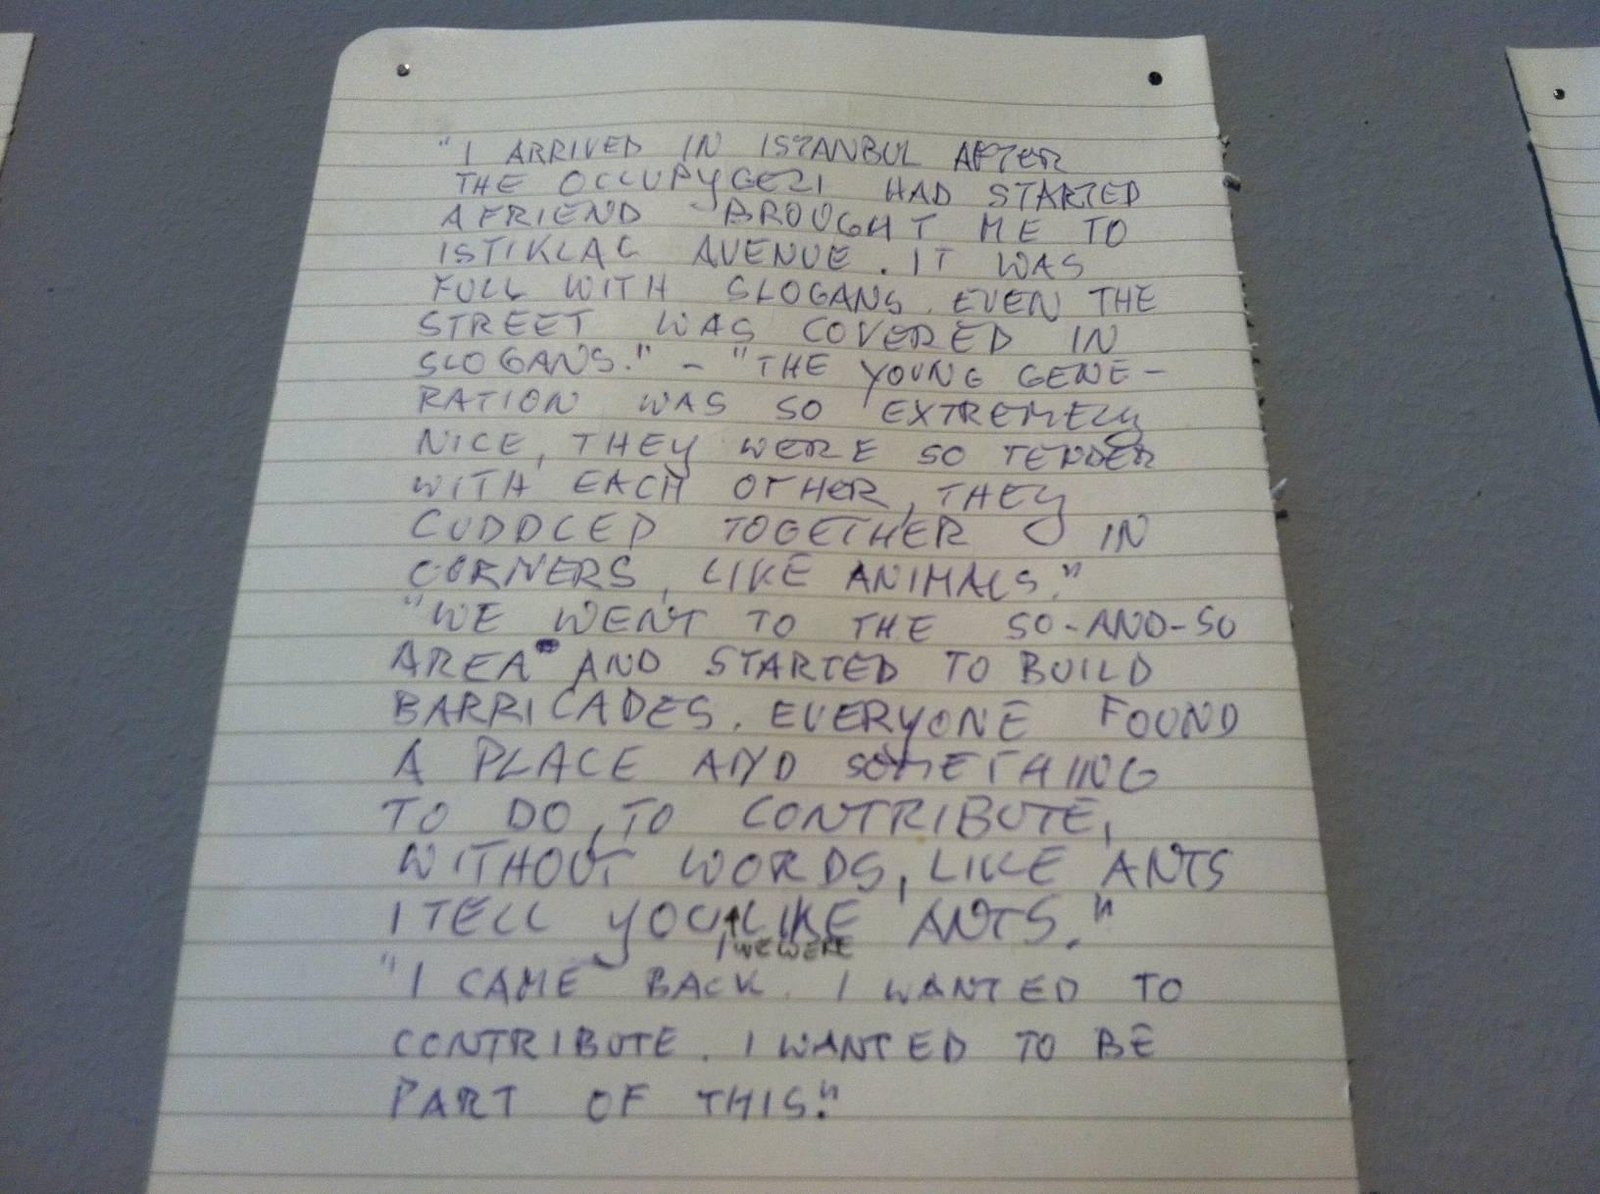 "I ARRIVED IN ISTANBUL AFTER
THE OCCUPYGEZI HAD STARTED
A FRIEND BROUGHT ME TO
ISTIKLAL AVENUE. IT WAS
FULL WITH SLOGANS. EVEN THE
STREET WAS COVERED IN
SLOGANS." - "THE YOUNG GENE-
RATION WAS SO EXTREMELY
NICE, THEY WERE SO TENDER
WITH EACH OTHER, THEY
CUDDLED TOGETHER IN
CORNERS, LIKE ANIMALS."
"WE WENT TO THE SO-AND-SO
AREA AND STARTED TO BUILD
BARRICADES. EVERYONE FOUND
A PLACE AND SOMETHING
TO DO, TO CONTRIBUTE,
WITHOUT WORDS, LIKE ANTS
I TELL YOU LIKE ANTS."
WE WERE
"I CAME BACK. I WANTED TO
CONTRIBUTE. I WANTED TO BE
PART OF THIS."